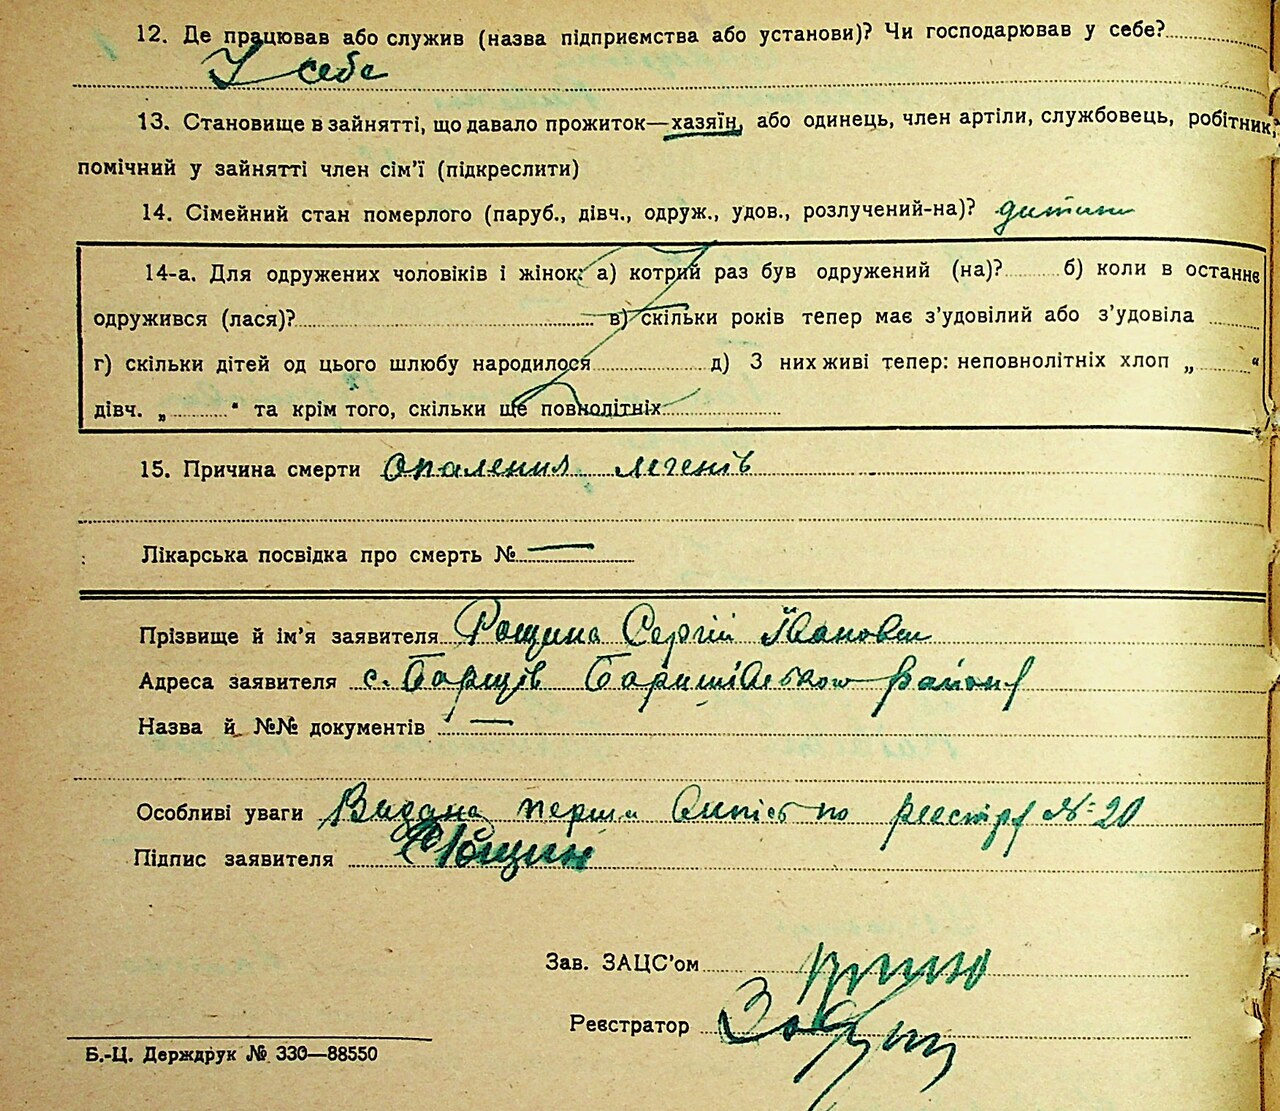 12. Де працював або служив (назва підприємства або установи)? Чи господарював у себе?
У себе
13. Становище в зайнятті, що давало прожиток—хазяїн, або одинець, член артіли, службовець, робітник,
помічний у зайнятті член сім'ї (підкреслити)
14. Сімейний стан померлого (паруб., дівч., одруж., удов., розлучений-на)? дитина
14-а. Для одружених чоловіків і жінок: а) котрий раз був одружений (на)? б) коли в останнє
одружився (лася)? в) скільки років тепер має з'удовілий або з'удовіла
г) скільки дітей од цього шлюбу народилося д) З них живі тепер: неповнолітніх хлоп „ “
дівч. „ “ та крім того, скільки ще повнолітніх
15. Причина смерти Опаления легенів
Лікарська посвідка про смерть № —
Прізвище й ім'я заявителя Рощина Сергій Іванович
Адреса заявителя с. Борщів Баришівського району
Назва й №№ документів —
Особливі уваги Видана перша випись по реєстру № 20
Підпис заявителя Рощин
Зав. ЗАЦС'ом
Реєстратор
Б.-Ц. Держдрук № 330—88550